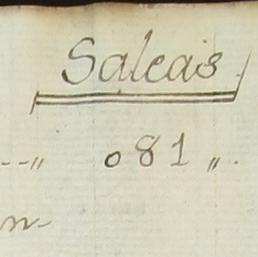 Saleas.
--" 081 ".
n-